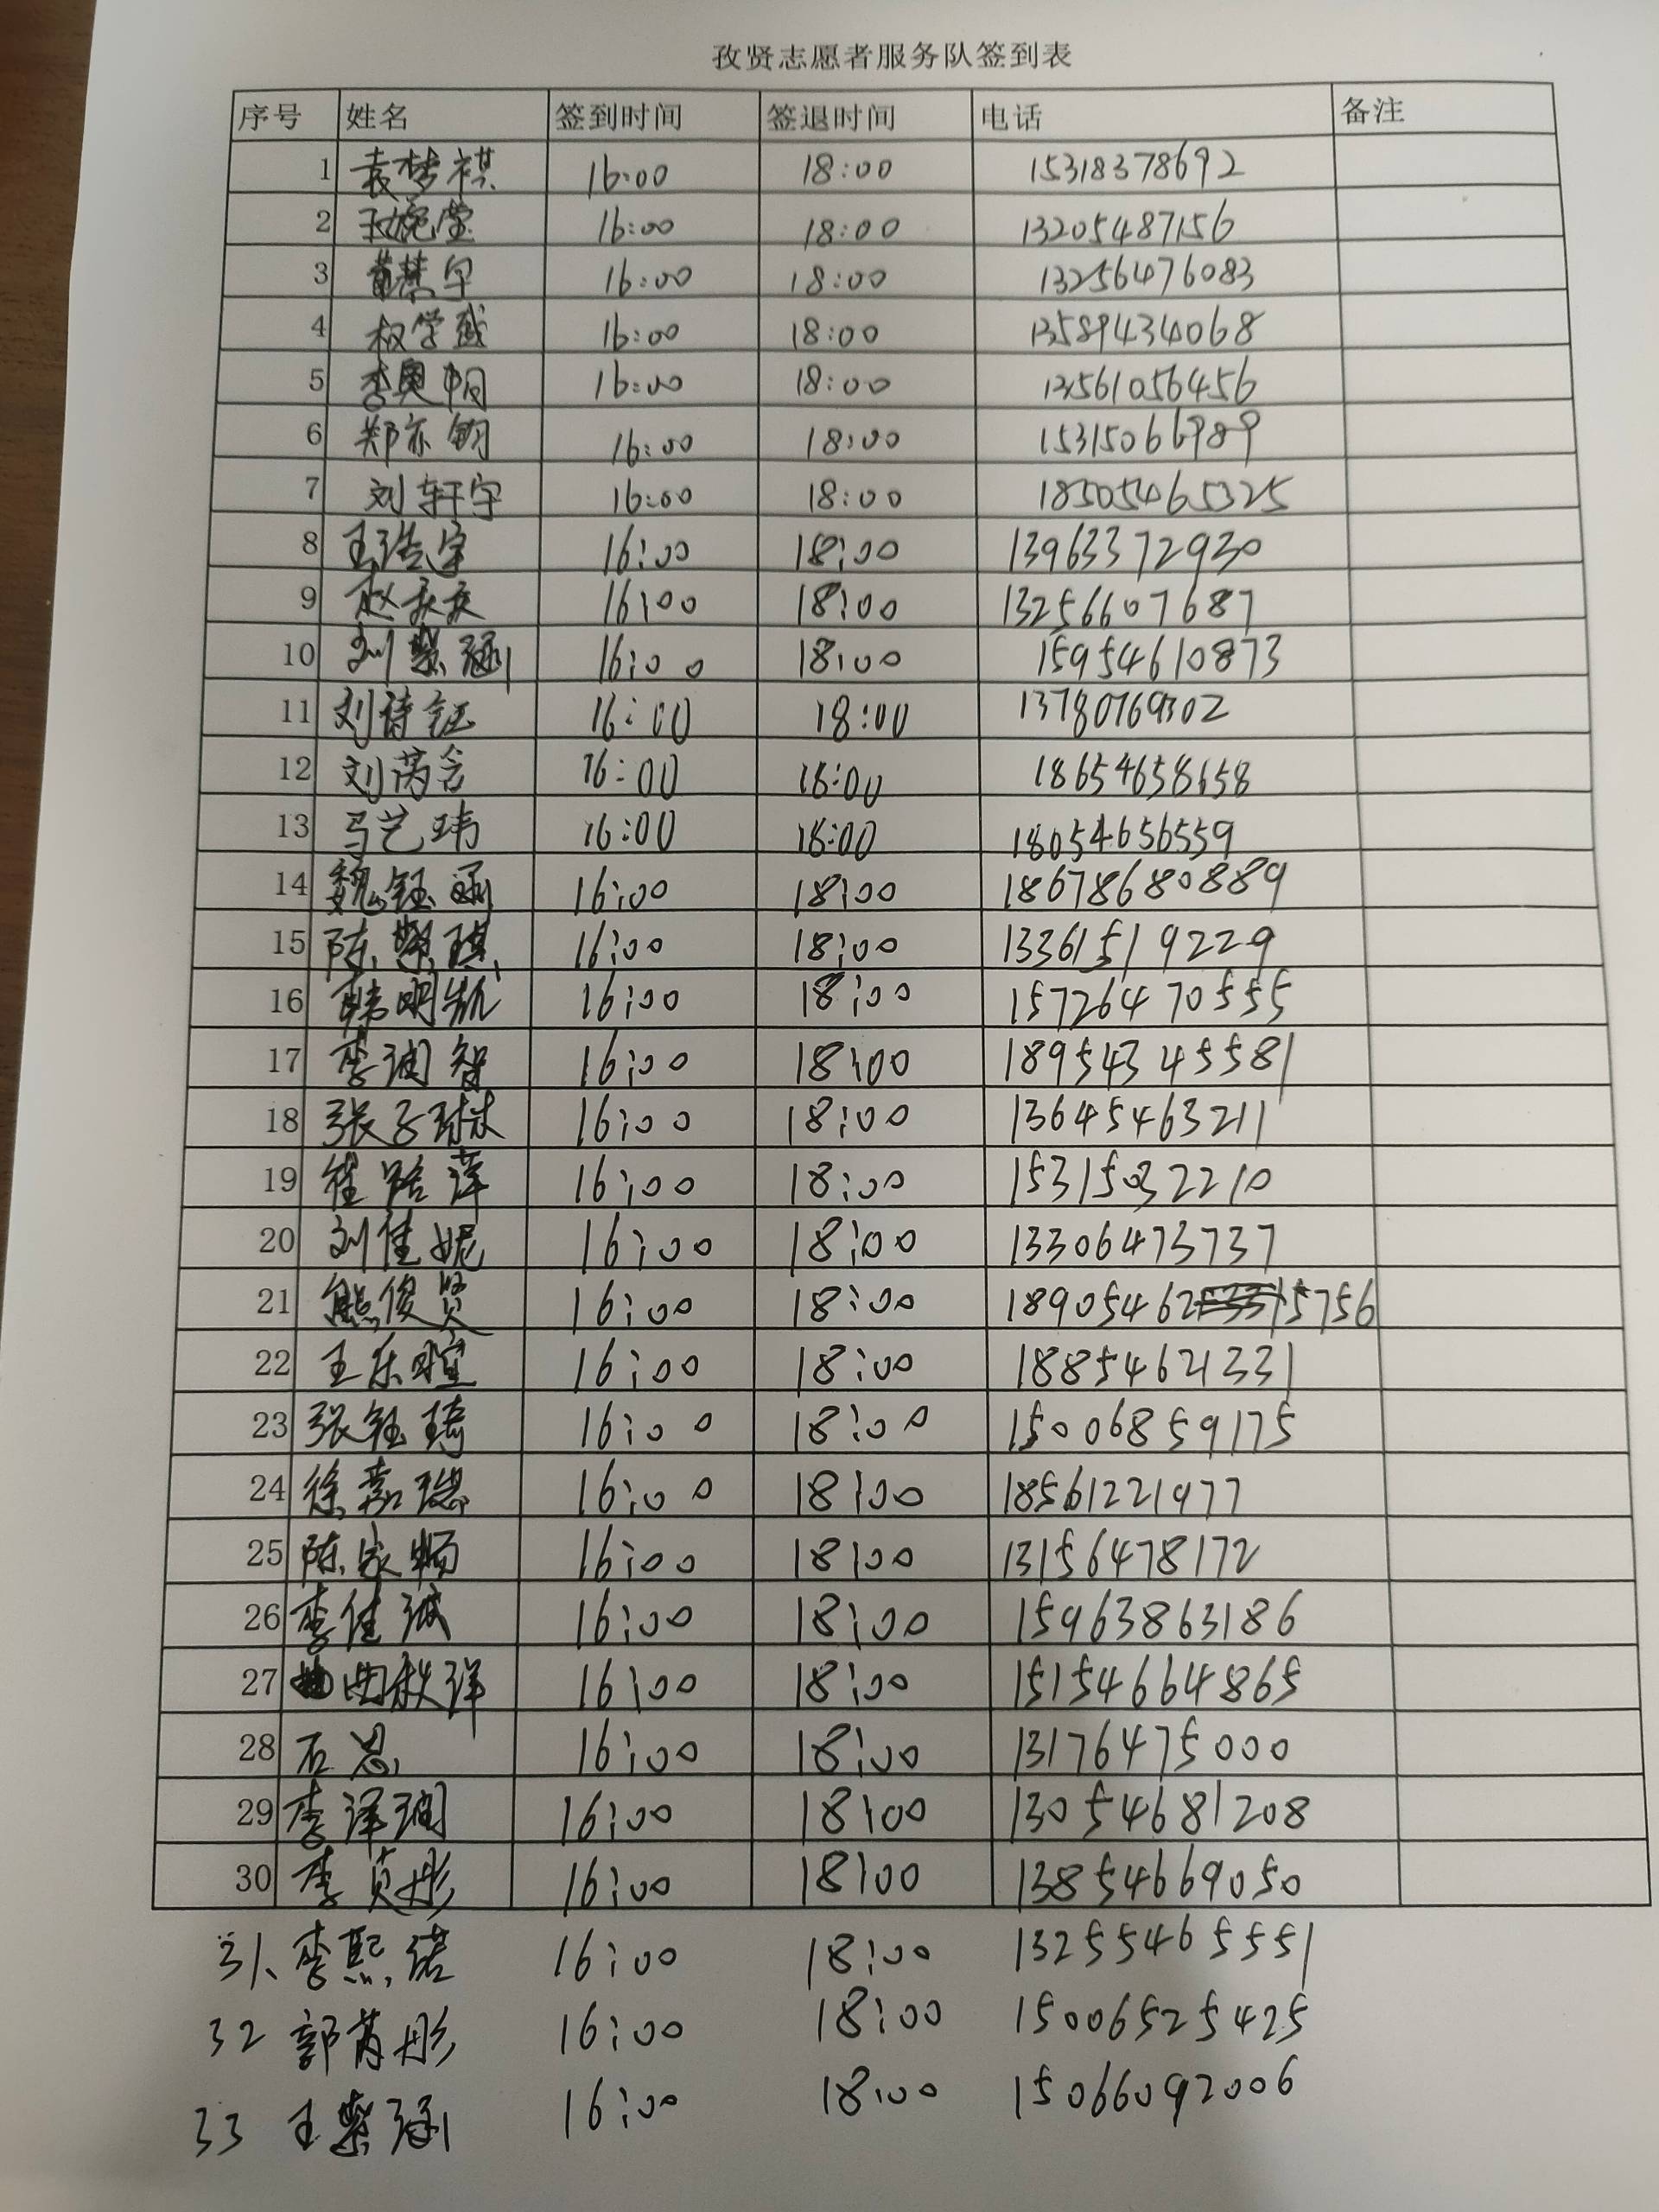 孜贤志愿者服务队签到表
序号 姓名 签到时间 签退时间 电话 备注
1 袁梦祺 16:00 18:00 15318378692
2 16:00 18:00 13205487156
3 黄慧宇 16:00 18:00 13256476083
4 权学 16:00 18:00 13589434068
5 李奥 16:00 18:00 13561056456
6 郑亦钧 16:00 18:00 15315066989
7 刘轩宇 16:00 18:00 18505465325
8 王浩宇 16:00 18:00 13963372930
9 赵 16:00 18:00 13256607687
10 刘紫涵 16:00 18:00 15954610873
11 刘诗钰 16:00 18:00 13780769302
12 刘芮含 16:00 18:00 18654658658
13 马艺玮 16:00 18:00 18054656559
14 魏钰涵 16:00 18:00 18678680889
15 陈紫琪 16:00 18:00 13361519229
16 韩明凯 16:00 18:00 15726470555
17 李润智 16:00 18:00 18954345581
18 张子琳 16:00 18:00 13645463211
19 崔 萍 16:00 18:00 15315032210
20 刘佳妮 16:00 18:00 13306473737
21 熊俊贤 16:00 18:00 18905462 5756
22 王乐暄 16:00 18:00 18854621331
23 张钰琦 16:00 18:00 15006859175
24 徐嘉 16:00 18:00 18561221977
25 陈家畅 16:00 18:00 13156478172
26 李佳诚 16:00 18:00 15963863186
27 曲秋洋 16:00 18:00 15154664865
28 石恩 16:00 18:00 13176475000
29 李泽润 16:00 18:00 13054681208
30 李贞彤 16:00 18:00 13854669050
31、李熙诺 16:00 18:00 13255465551
32 郭芮彤 16:00 18:00 15006525425
33 王紫涵 16:00 18:00 15066092006